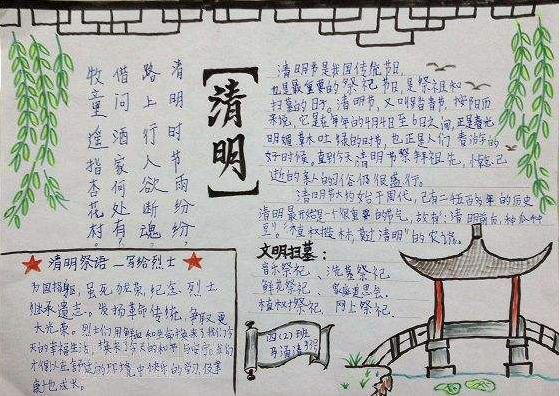 清明时节雨纷纷，
路上行人欲断魂。
借问酒家何处有，
牧童遥指杏花村。
【清明】
清明节是我国传统节日，
也是最重要的祭祀节日，是祭祖和
扫墓的日子。清明节，又叫踏青节，按阳历
来说，它是在每年的4月4日至6日之间，正是春光
明媚草木吐绿的时节，也正是人们春游的
好时候，直到今天，清明节祭拜祖先，悼念已
逝的亲人的习俗仍很盛行。
清明节大约始于周代，已有二千五百多年的历史
清明最开始是一个很重要的节气，故有：清明前后，种瓜种
豆"。"植树造林，莫过清明"的农谚。
文明扫墓：
音乐祭祀、洗墓祭祀
鲜花祭祀、家庭追思会
植树祭祀、网上祭祀.
清明祭语—写给烈士
为国捐躯，虽死犹荣，纪念烈士
继承遗志。发扬革命传统，争取更
大光荣。烈士们用鲜血和生命换来了我们今
天的幸福生活，换来了今天的和平与安宁，我们
才
四(2)班